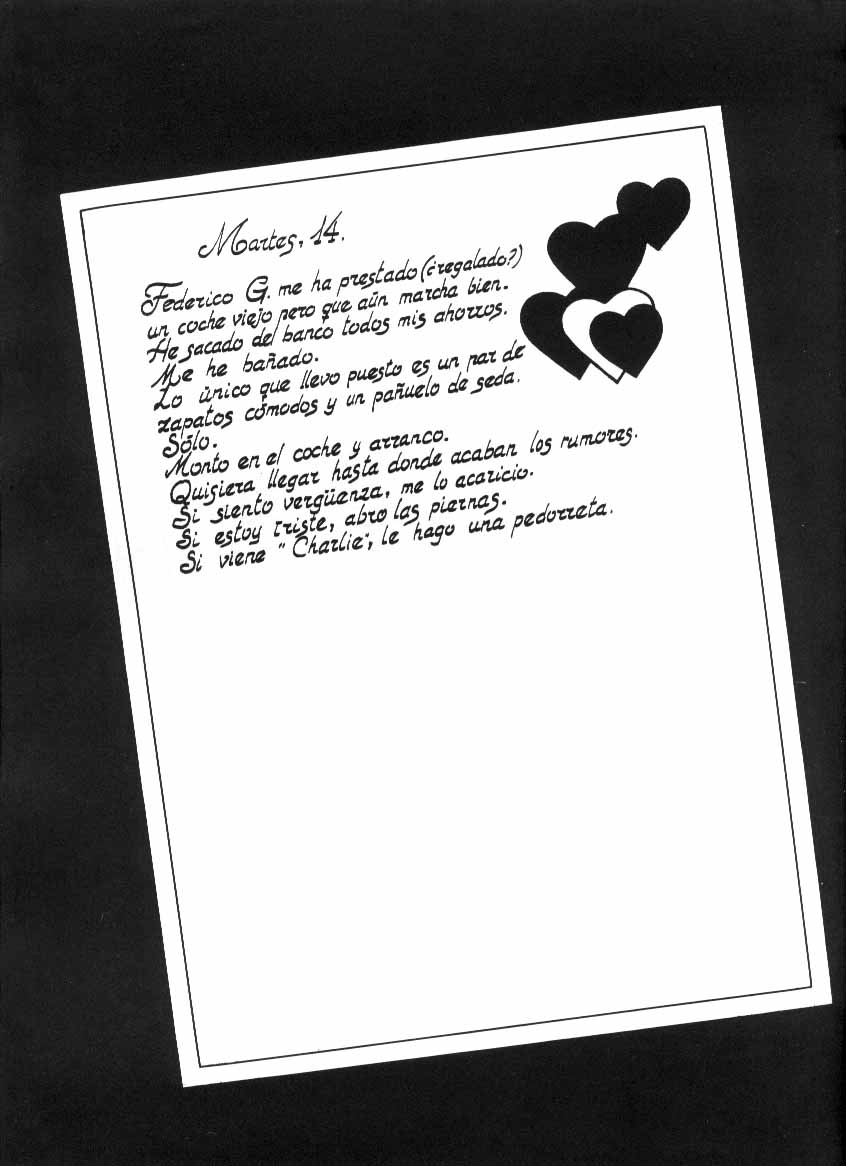 Martes, 14.
Federico G. me ha prestado (¿regalado?)
un coche viejo pero que aún marcha bien.
He sacado del banco todos mis ahorros.
Me he bañado.
Lo único que llevo puesto es un par de
zapatos cómodos y un pañuelo de seda.
Sólo.
Monto en el coche y arranco.
Quisiera llegar hasta donde acaban los rumores.
Si siento vergüenza, me lo acaricio.
Si estoy triste, abro las piernas.
Si viene "Charlie", le hago una pedorreta.